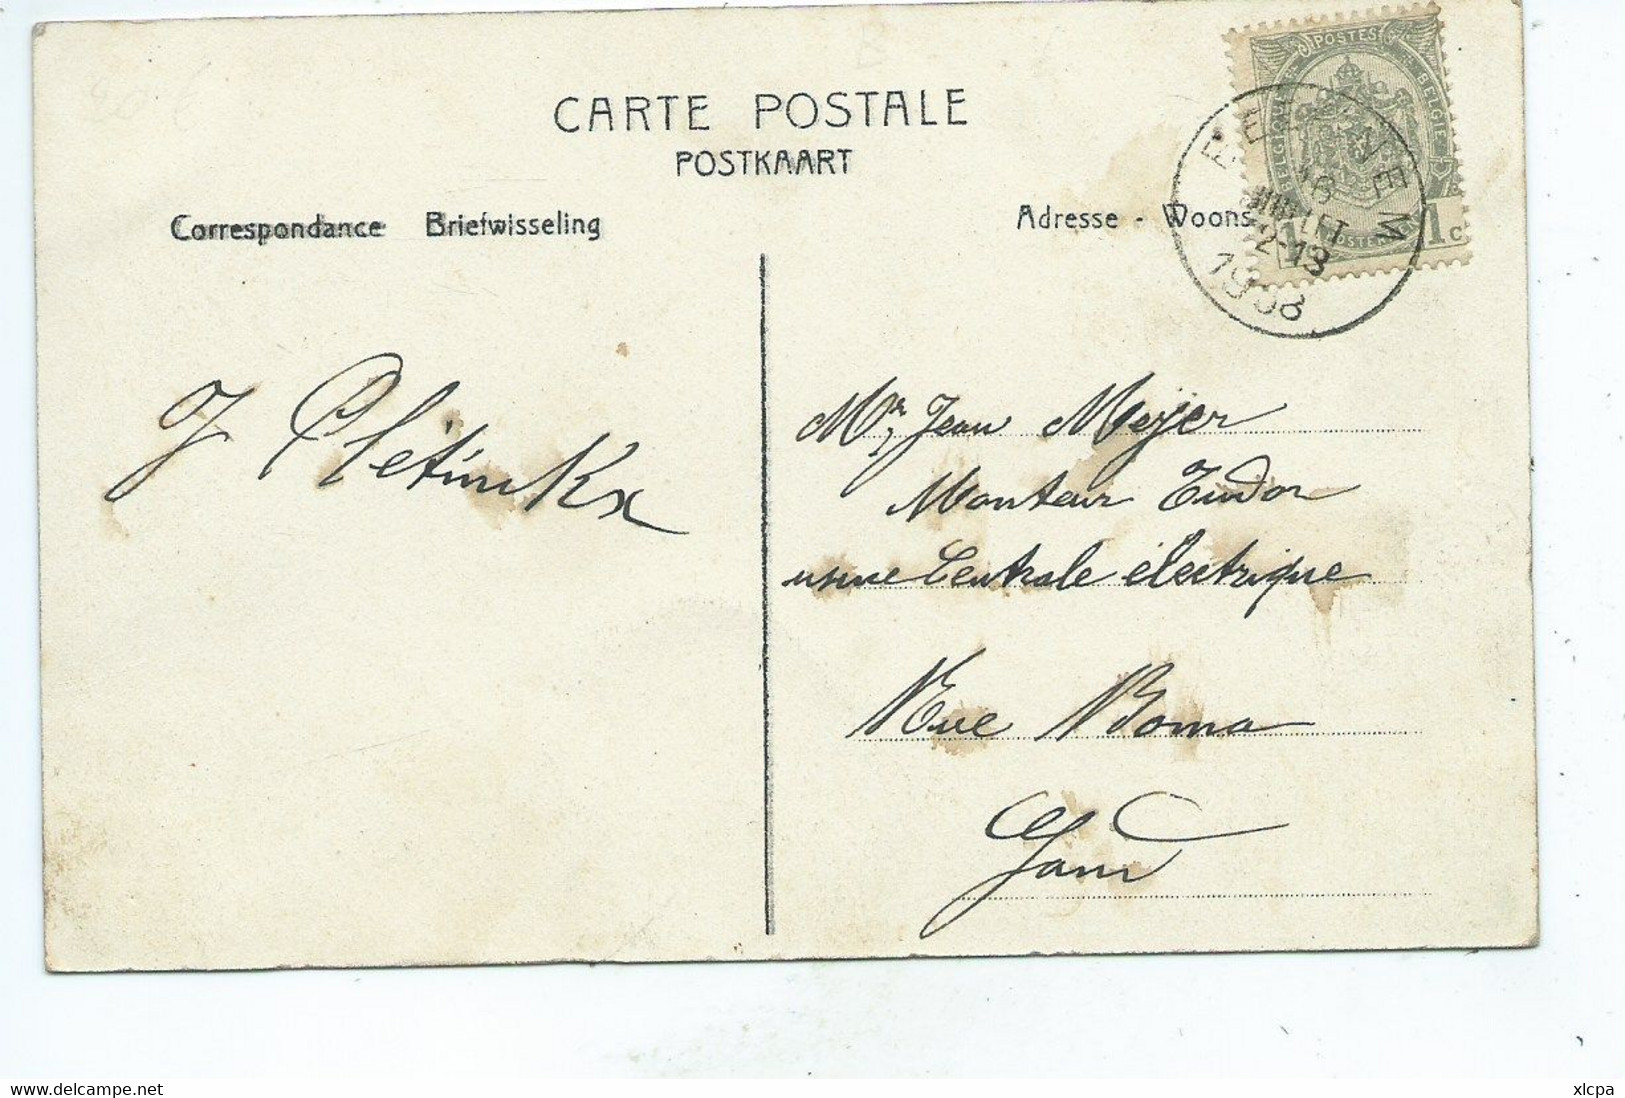 CARTE POSTALE
POSTKAART
Correspondance Briefwisseling
Adresse - Woons
POSTES
BELGIQUE
BELGIË
1 1c
JUILLET
12-13
1908
J Pletinckx
Mr Jean Meyer
Monteur Tudor
usine Centrale électrique
Rue Boma
Gand
www.delcampe.net
xlcpa